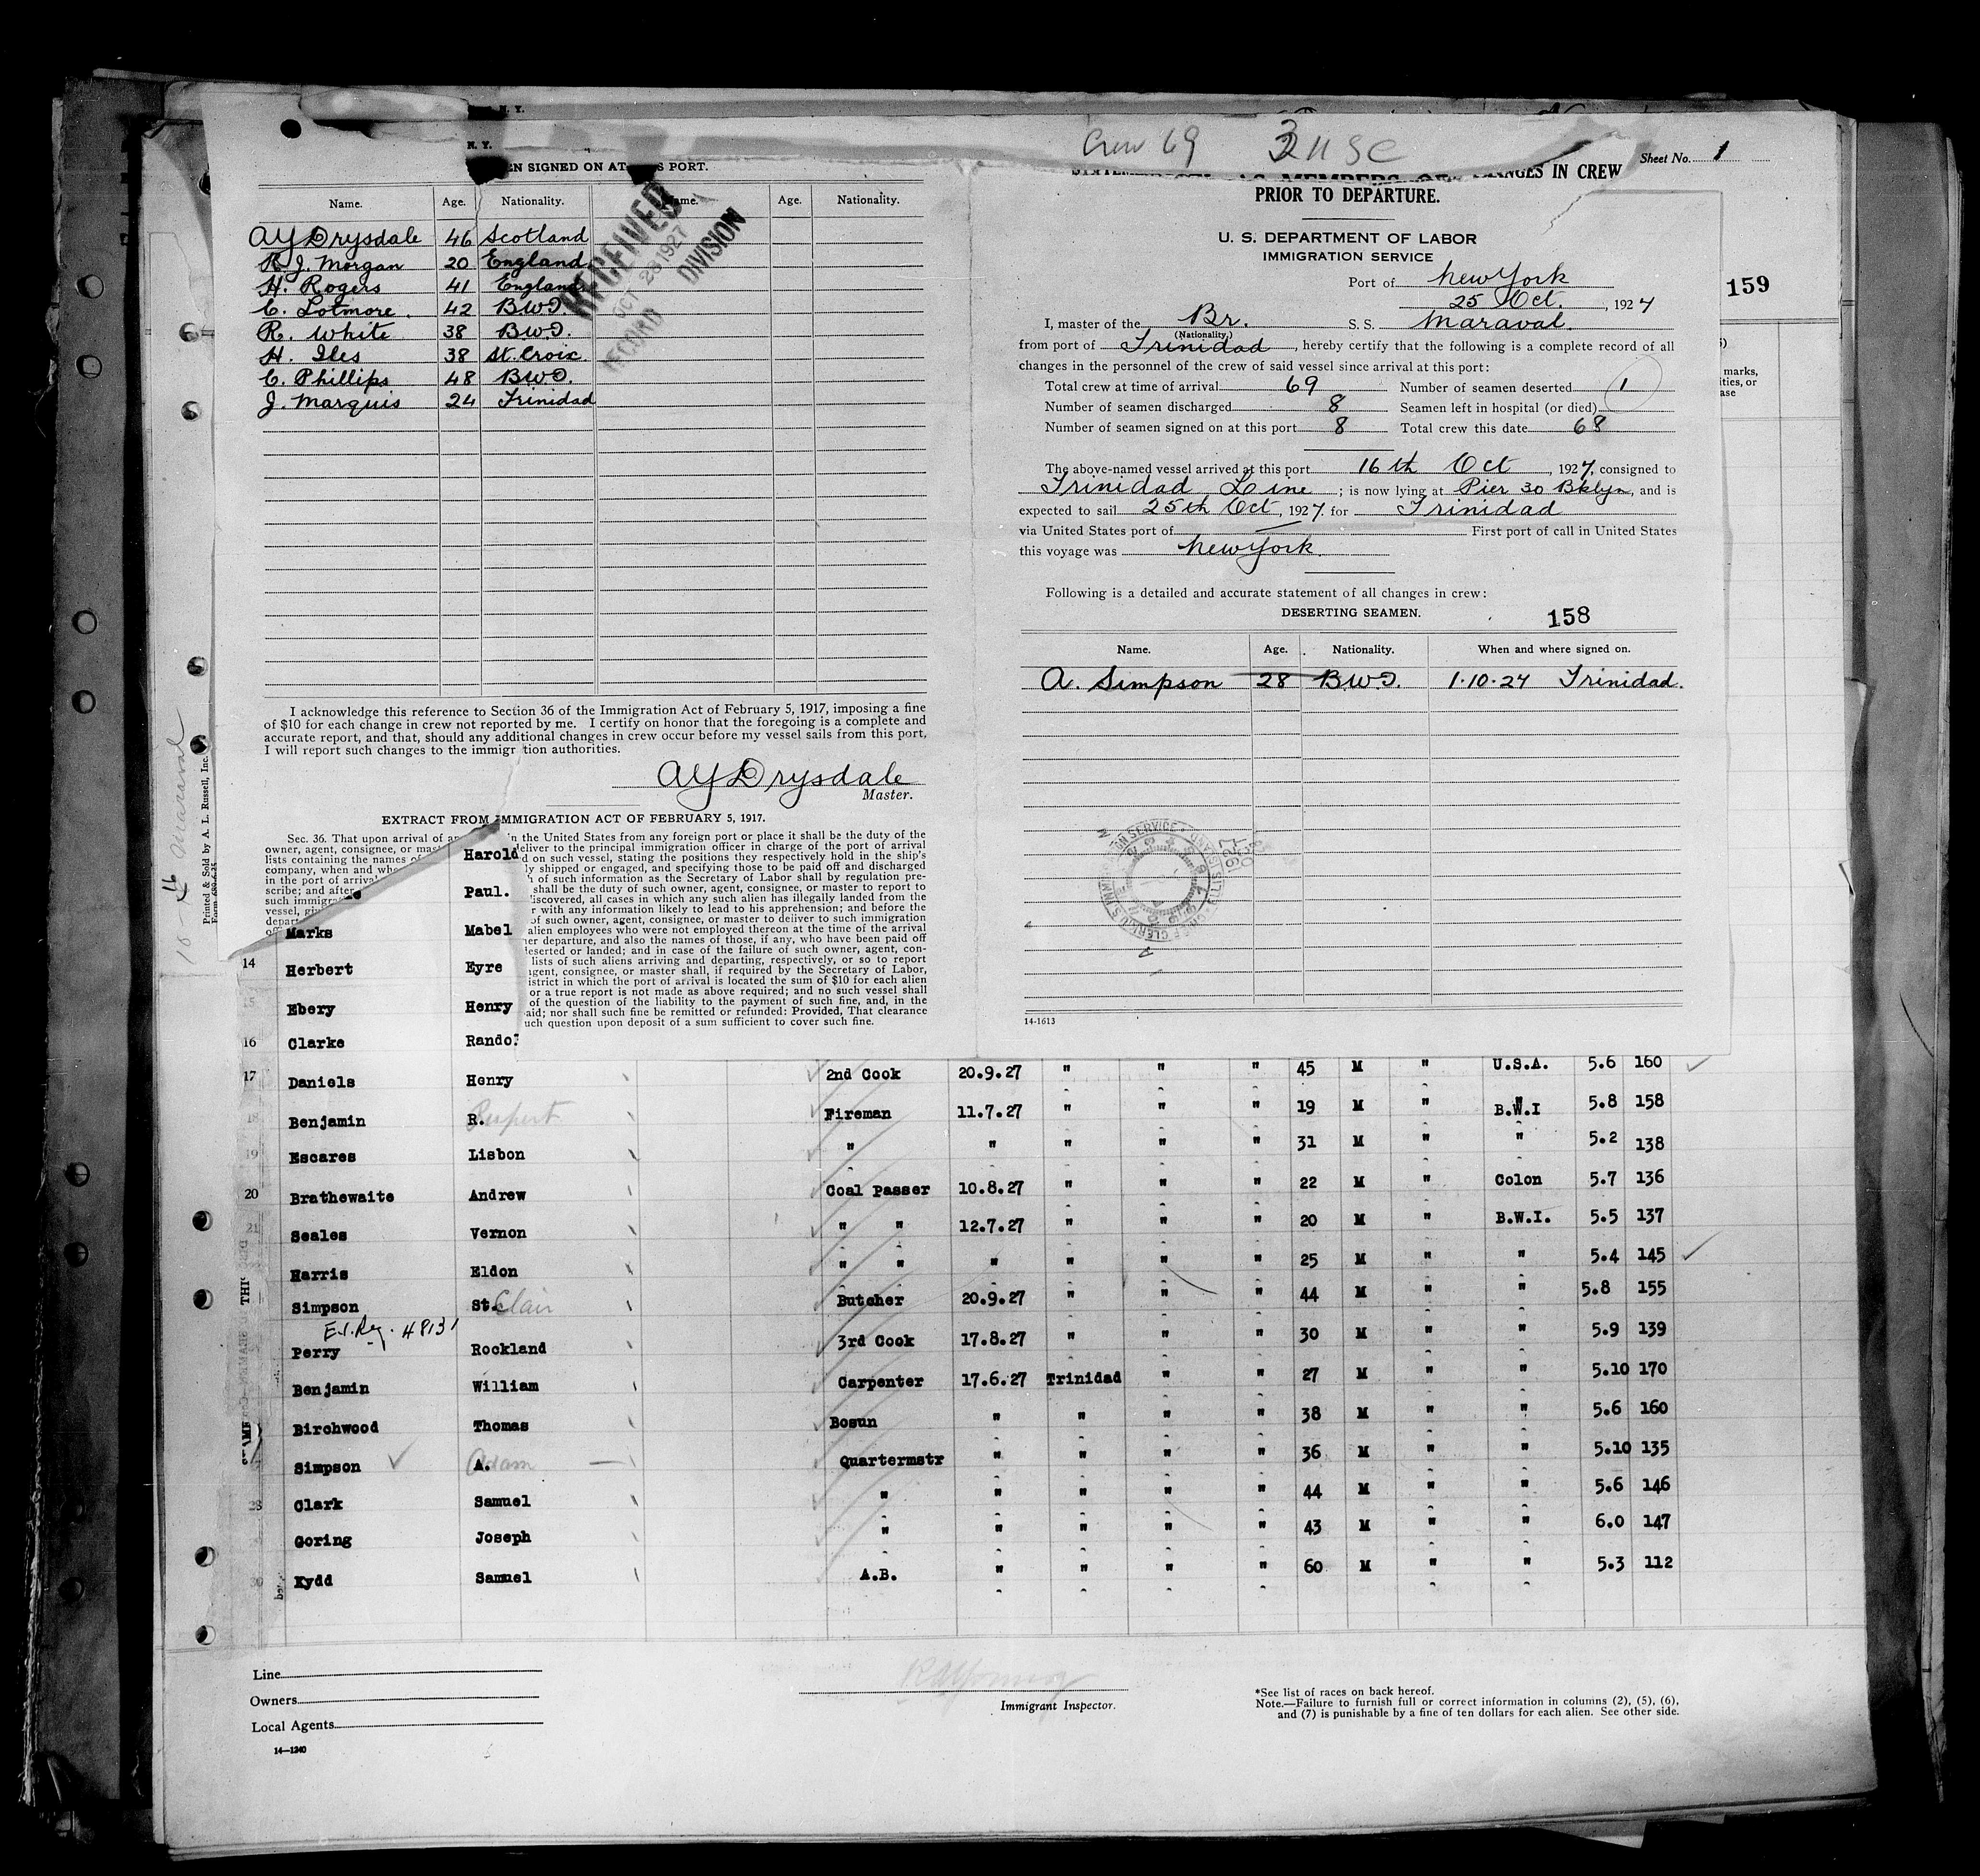 N. Y.
N. Y.
Crew 69
Sheet No. 1
EN SIGNED ON AT S PORT.
Name. Age. Nationality. Name. Age. Nationality.
AY Drysdale 46 Scotland
R. J. Morgan 20 England
H. Rogers 41 England
C. Lotmore. 42 B.W.I.
R. White 38 B.W.I.
H. Iles 38 St. Croix
C. Phillips 48 B.W.I.
J. Marquis 24 Trinidad
RECEIVED
OCT 28 1927
RECORD DIVISION
I acknowledge this reference to Section 36 of the Immigration Act of February 5, 1917, imposing a fine
of $10 for each change in crew not reported by me. I certify on honor that the foregoing is a complete and
accurate report, and that, should any additional changes in crew occur before my vessel sails from this port,
I will report such changes to the immigr tion authorities.
AY Drysdale
Master.
EXTRACT FROM IMMIGRATION ACT OF FEBRUARY 5, 1917.
Sec. 36. That upon arrival of an in the United States from any foreign port or place it shall be the duty of the
owner, agent, consignee, or mast deliver to the principal immigration officer in charge of the port of arrival
lists containing the names of d on such vessel, stating the positions they respectively hold in the ship's
company, when and whe ly shipped or engaged, and specifying those to be paid off and discharged
in the port of arrival of such information as the Secretary of Labor shall by regulation pre-
scribe; and after shall be the duty of such owner, agent, consignee, or master to report to
such immigra iscovered, all cases in which any such alien has illegally landed from the
vessel, gi r with any information likely to lead to his apprehension; and before the
depart of such owner, agent, consignee, or master to deliver to such immigration
alien employees who were not employed thereon at the time of the arrival
er departure, and also the names of those, if any, who have been paid off
deserted or landed; and in case of the failure of such owner, agent, con-
lists of such aliens arriving and departing, respectively, or so to report
gent, consignee, or master shall, if required by the Secretary of Labor,
istrict in which the port of arrival is located the sum of $10 for each alien
or a true report is not made as above required; and no such vessel shall
of the question of the liability to the payment of such fine, and, in the
aid; nor shall such fine be remitted or refunded: Provided, That clearance
uch question upon deposit of a sum sufficient to cover such fine.
ANGES IN CREW
PRIOR TO DEPARTURE.
U. S. DEPARTMENT OF LABOR
IMMIGRATION SERVICE
Port of New York
25 Oct., 1927
I, master of the Br. S. S. Maraval.
(Nationality)
from port of Trinidad, hereby certify that the following is a complete record of all
changes in the personnel of the crew of said vessel since arrival at this port:
Total crew at time of arrival 69 Number of seamen deserted 1
Number of seamen discharged 8 Seamen left in hospital (or died)
Number of seamen signed on at this port 8 Total crew this date 68
The above-named vessel arrived at this port 16th Oct, 1927, consigned to
Trinidad Line; is now lying at Pier 30 Bklyn, and is
expected to sail 25th Oct, 1927. for Trinidad
via United States port of First port of call in United States
this voyage was New York.
Following is a detailed and accurate statement of all changes in crew:
DESERTING SEAMEN. 158
Name. Age. Nationality. When and where signed on.
A. Simpson 28 B.W.I. 1.10.27 Trinidad.
14-1613
159
marks,
ities, or
ase
Printed & Sold by A. L. Russell, Inc.
Form 689-6-25
Maraval
Harold
Paul.
Marks Mabel
14 Herbert Eyre
15 Ebery Henry
16 Clarke Rando
17 Daniels Henry 2nd Cook 20.9.27 " " " 45 M " U.S.A. 5.6 160
18 Benjamin R. Rupert Fireman 11.7.27 " " " 19 M " B.W.I 5.8 158
19 Escares Lisbon " " " " " 31 M " " 5.2 138
20 Brathewaite Andrew Coal Passer 10.8.27 " " " 22 M " Colon 5.7 136
21 Seales Vernon " " 12.7.27 " " " 20 M " B.W.I. 5.5 137
Harris Eldon " " " " " " 25 M " " 5.4 145
Simpson St. Clair Butcher 20.9.27 " " " 44 M " " 5.8 155
E.I. Reg. 48131
Perry Rockland 3rd Cook 17.8.27 " " " 30 M " " 5.9 139
Benjamin William Carpenter 17.6.27 Trinidad " " 27 M " " 5.10 170
Birchwood Thomas Bosun " " " " 38 M " " 5.6 160
Simpson A. Adam Quartermstr " " " " 36 M " " 5.10 135
28 Clark Samuel " " " " " 44 M " " 5.6 146
Goring Joseph " " " " " 43 M " " 6.0 147
30 Kydd Samuel A.B. " " " " 60 M " " 5.3 112
Line
Owners
Local Agents
14—1240
Immigrant Inspector.
*See list of races on back hereof.
Note.—Failure to furnish full or correct information in columns (2), (5), (6),
and (7) is punishable by a fine of ten dollars for each alien. See other side.